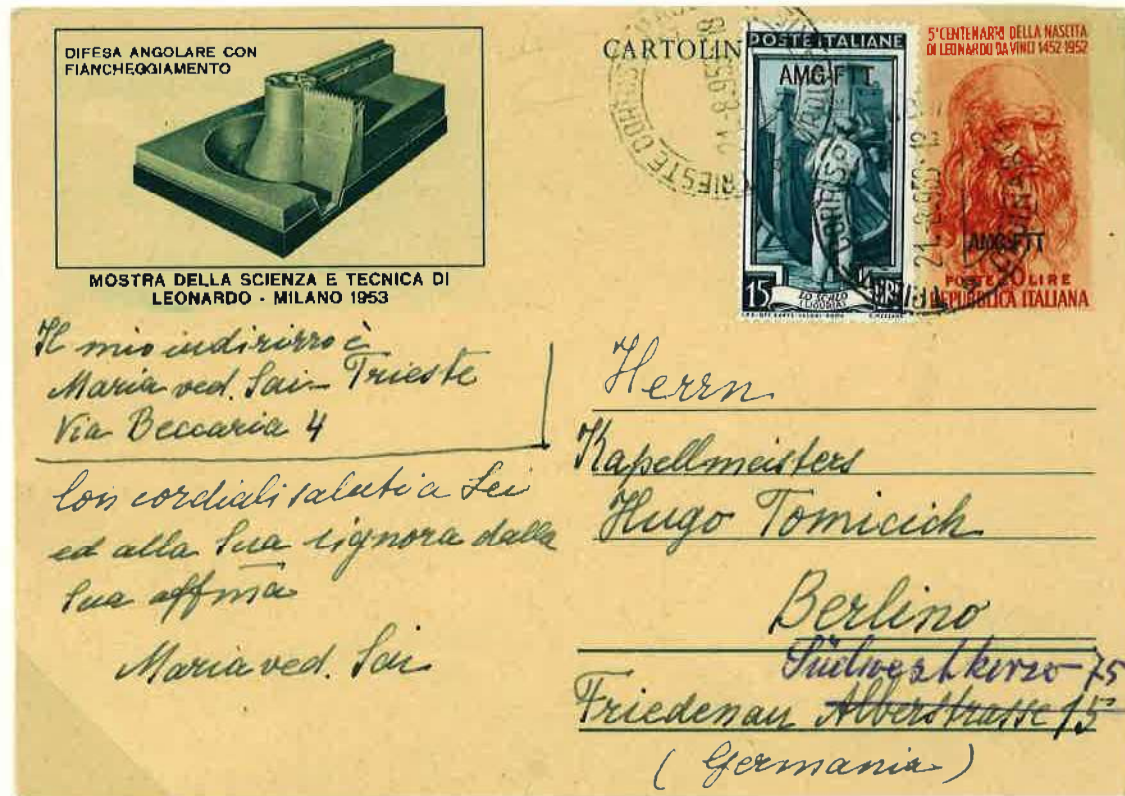 DIFESA ANGOLARE CON
FIANCHEGGIAMENTO
MOSTRA DELLA SCIENZA E TECNICA DI
LEONARDO - MILANO 1953
CARTOLIN
POSTE ITALIANE
AMG-FTT
15
LO SCALO
(LIGURIA)
5° CENTENARIO DELLA NASCITA
DI LEONARDO DA VINCI 1452-1952
AMG-FTT
POSTE LIRE
REPUBBLICA ITALIANA
TRIESTE CORRISP
21.-8.953.-18
Il mio indirizzo è
Maria ved. Sai - Trieste
Via Beccaria 4
Con cordiali saluti a Lei
ed alla Sua signora dalla
Sua affma
Maria ved. Sai
Herrn
Kapellmeisters
Hugo Tomicich
Berlino
Südwestkorso 75
Friedenau Alberstrasse 15
(Germania)